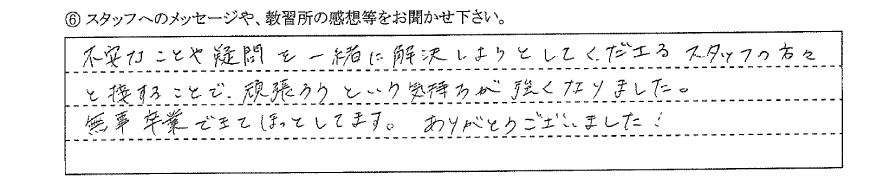 ⑥ スタッフへのメッセージや、教習所の感想等をお聞かせ下さい。
不安なことや疑問を一緒に解決しようとしてくださるスタッフの方々
と接することで、頑張ろうという気持ちが強くなりました。
無事卒業できてほっとしてます。ありがとうございました！